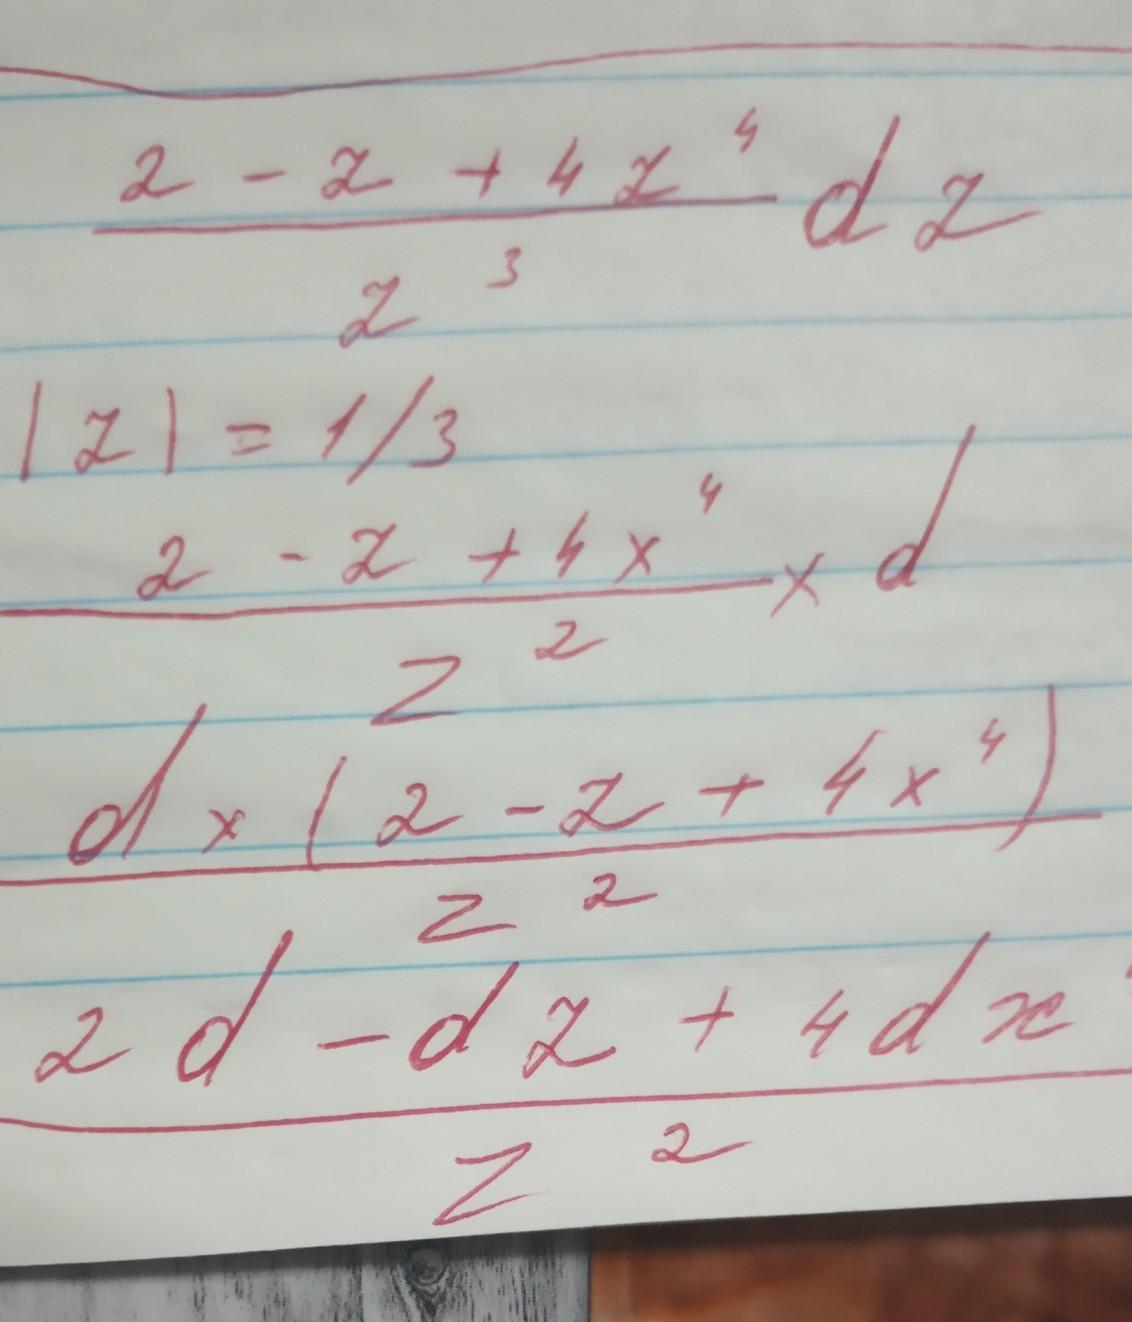 2 - z + 4z⁴ dz
z³
|z| = 1/3
2 - z + 4x⁴ × d
z²
d × (2 - z + 4x⁴)
z²
2d - dz + 4dx
z²